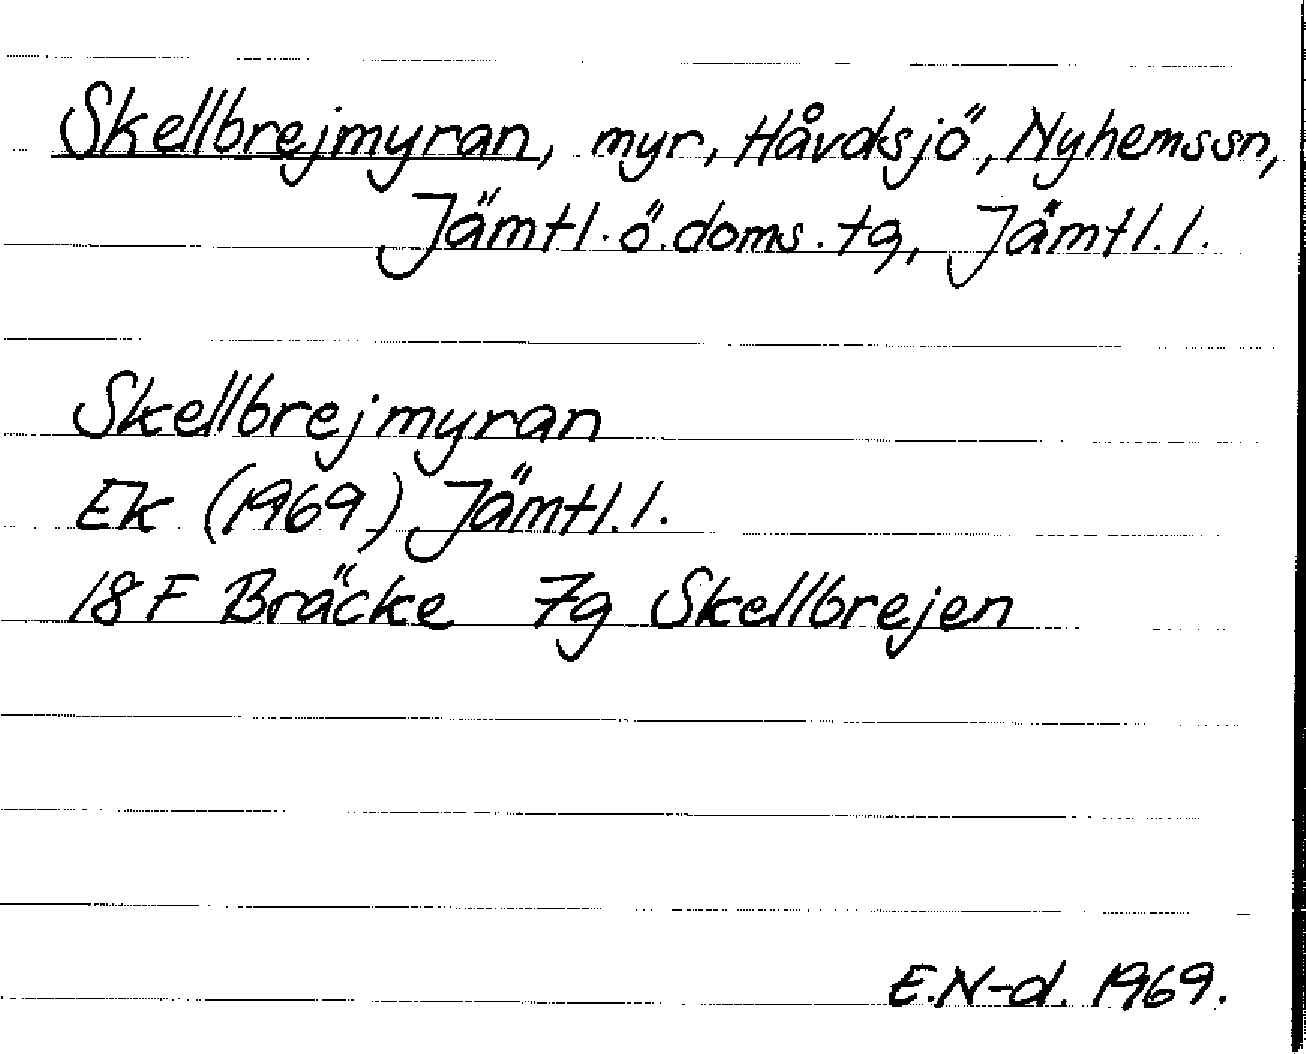 Skellbrejmyran, myr, Håvdsjö, Nyhemssn,
Jämtl. ö. doms. tg, Jämtl. l.
Skellbrejmyran
Ek (1969) Jämtl. l.
18 F Bräcke 7g Skellbrejen
E.N-d. 1969.